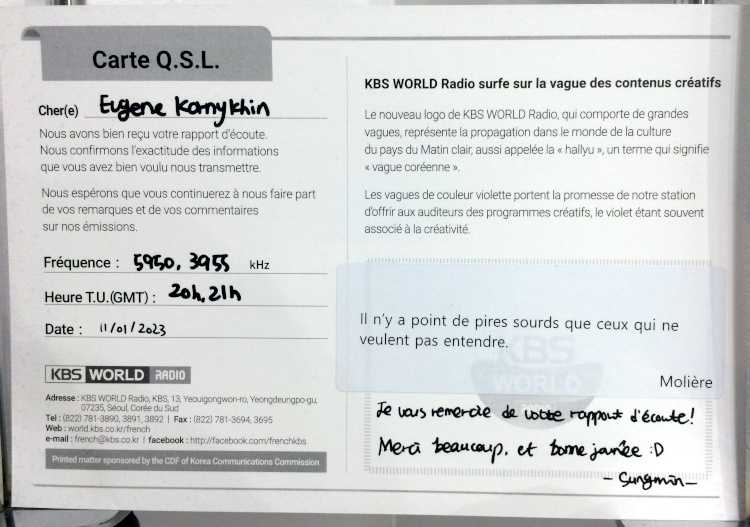 Carte Q.S.L.
Cher(e) Eugene Kornykhin
Nous avons bien reçu votre rapport d'écoute.
Nous confirmons l'exactitude des informations
que vous avez bien voulu nous transmettre.
Nous espérons que vous continuerez à nous faire part
de vos remarques et de vos commentaires
sur nos émissions.
Fréquence : 5950, 3955 kHz
Heure T.U.(GMT) : 20h, 21h
Date : 11/01/2023
KBS WORLD RADIO
Adresse : KBS WORLD Radio, KBS, 13, Yeouigongwon-ro, Yeongdeungpo-gu,
07235, Séoul, Corée du Sud
Tel : (822) 781-3890, 3891, 3892 | Fax : (822) 781-3694, 3695
Web : world.kbs.co.kr/french
e-mail : french@kbs.co.kr | facebook : http://facebook.com/frenchkbs
Printed matter sponsored by the CDF of Korea Communications Commission
KBS WORLD Radio surfe sur la vague des contenus créatifs
Le nouveau logo de KBS WORLD Radio, qui comporte de grandes
vagues, représente la propagation dans le monde de la culture
du pays du Matin clair, aussi appelée la « hallyu », un terme qui signifie
« vague coréenne ».
Les vagues de couleur violette portent la promesse de notre station
d'offrir aux auditeurs des programmes créatifs, le violet étant souvent
associé à la créativité.
Il n'y a point de pires sourds que ceux qui ne
veulent pas entendre.
KBS
WORLD
Molière
Je vous remercie de votre rapport d'écoute!
Merci beaucoup, et bonne journée :D
- Sungmin -